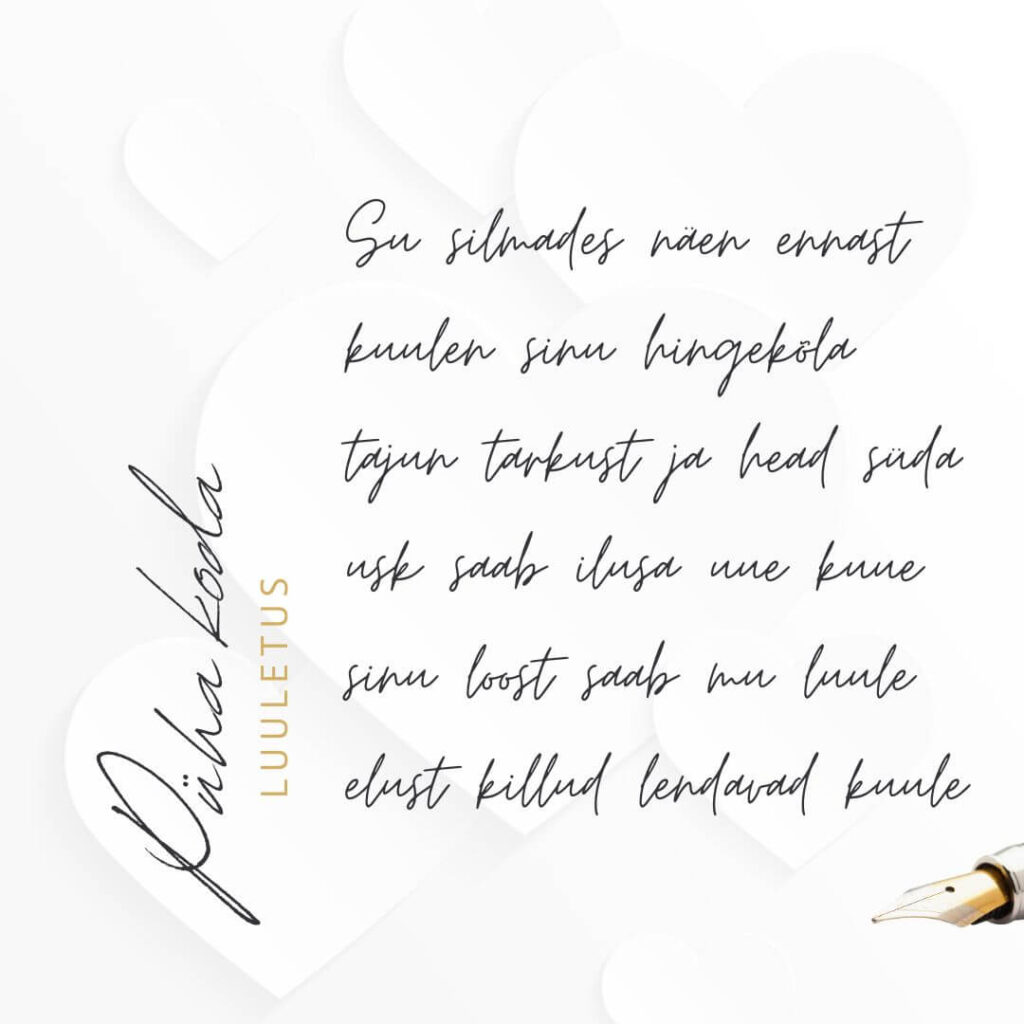 Püha koda
LUULETUS
Su silmades näen ennast
kuulen sinu hingekõla
tajun tarkust ja head süda
usk saab ilusa uue kuue
sinu loost saab mu luule
elust killud lendavad kuule